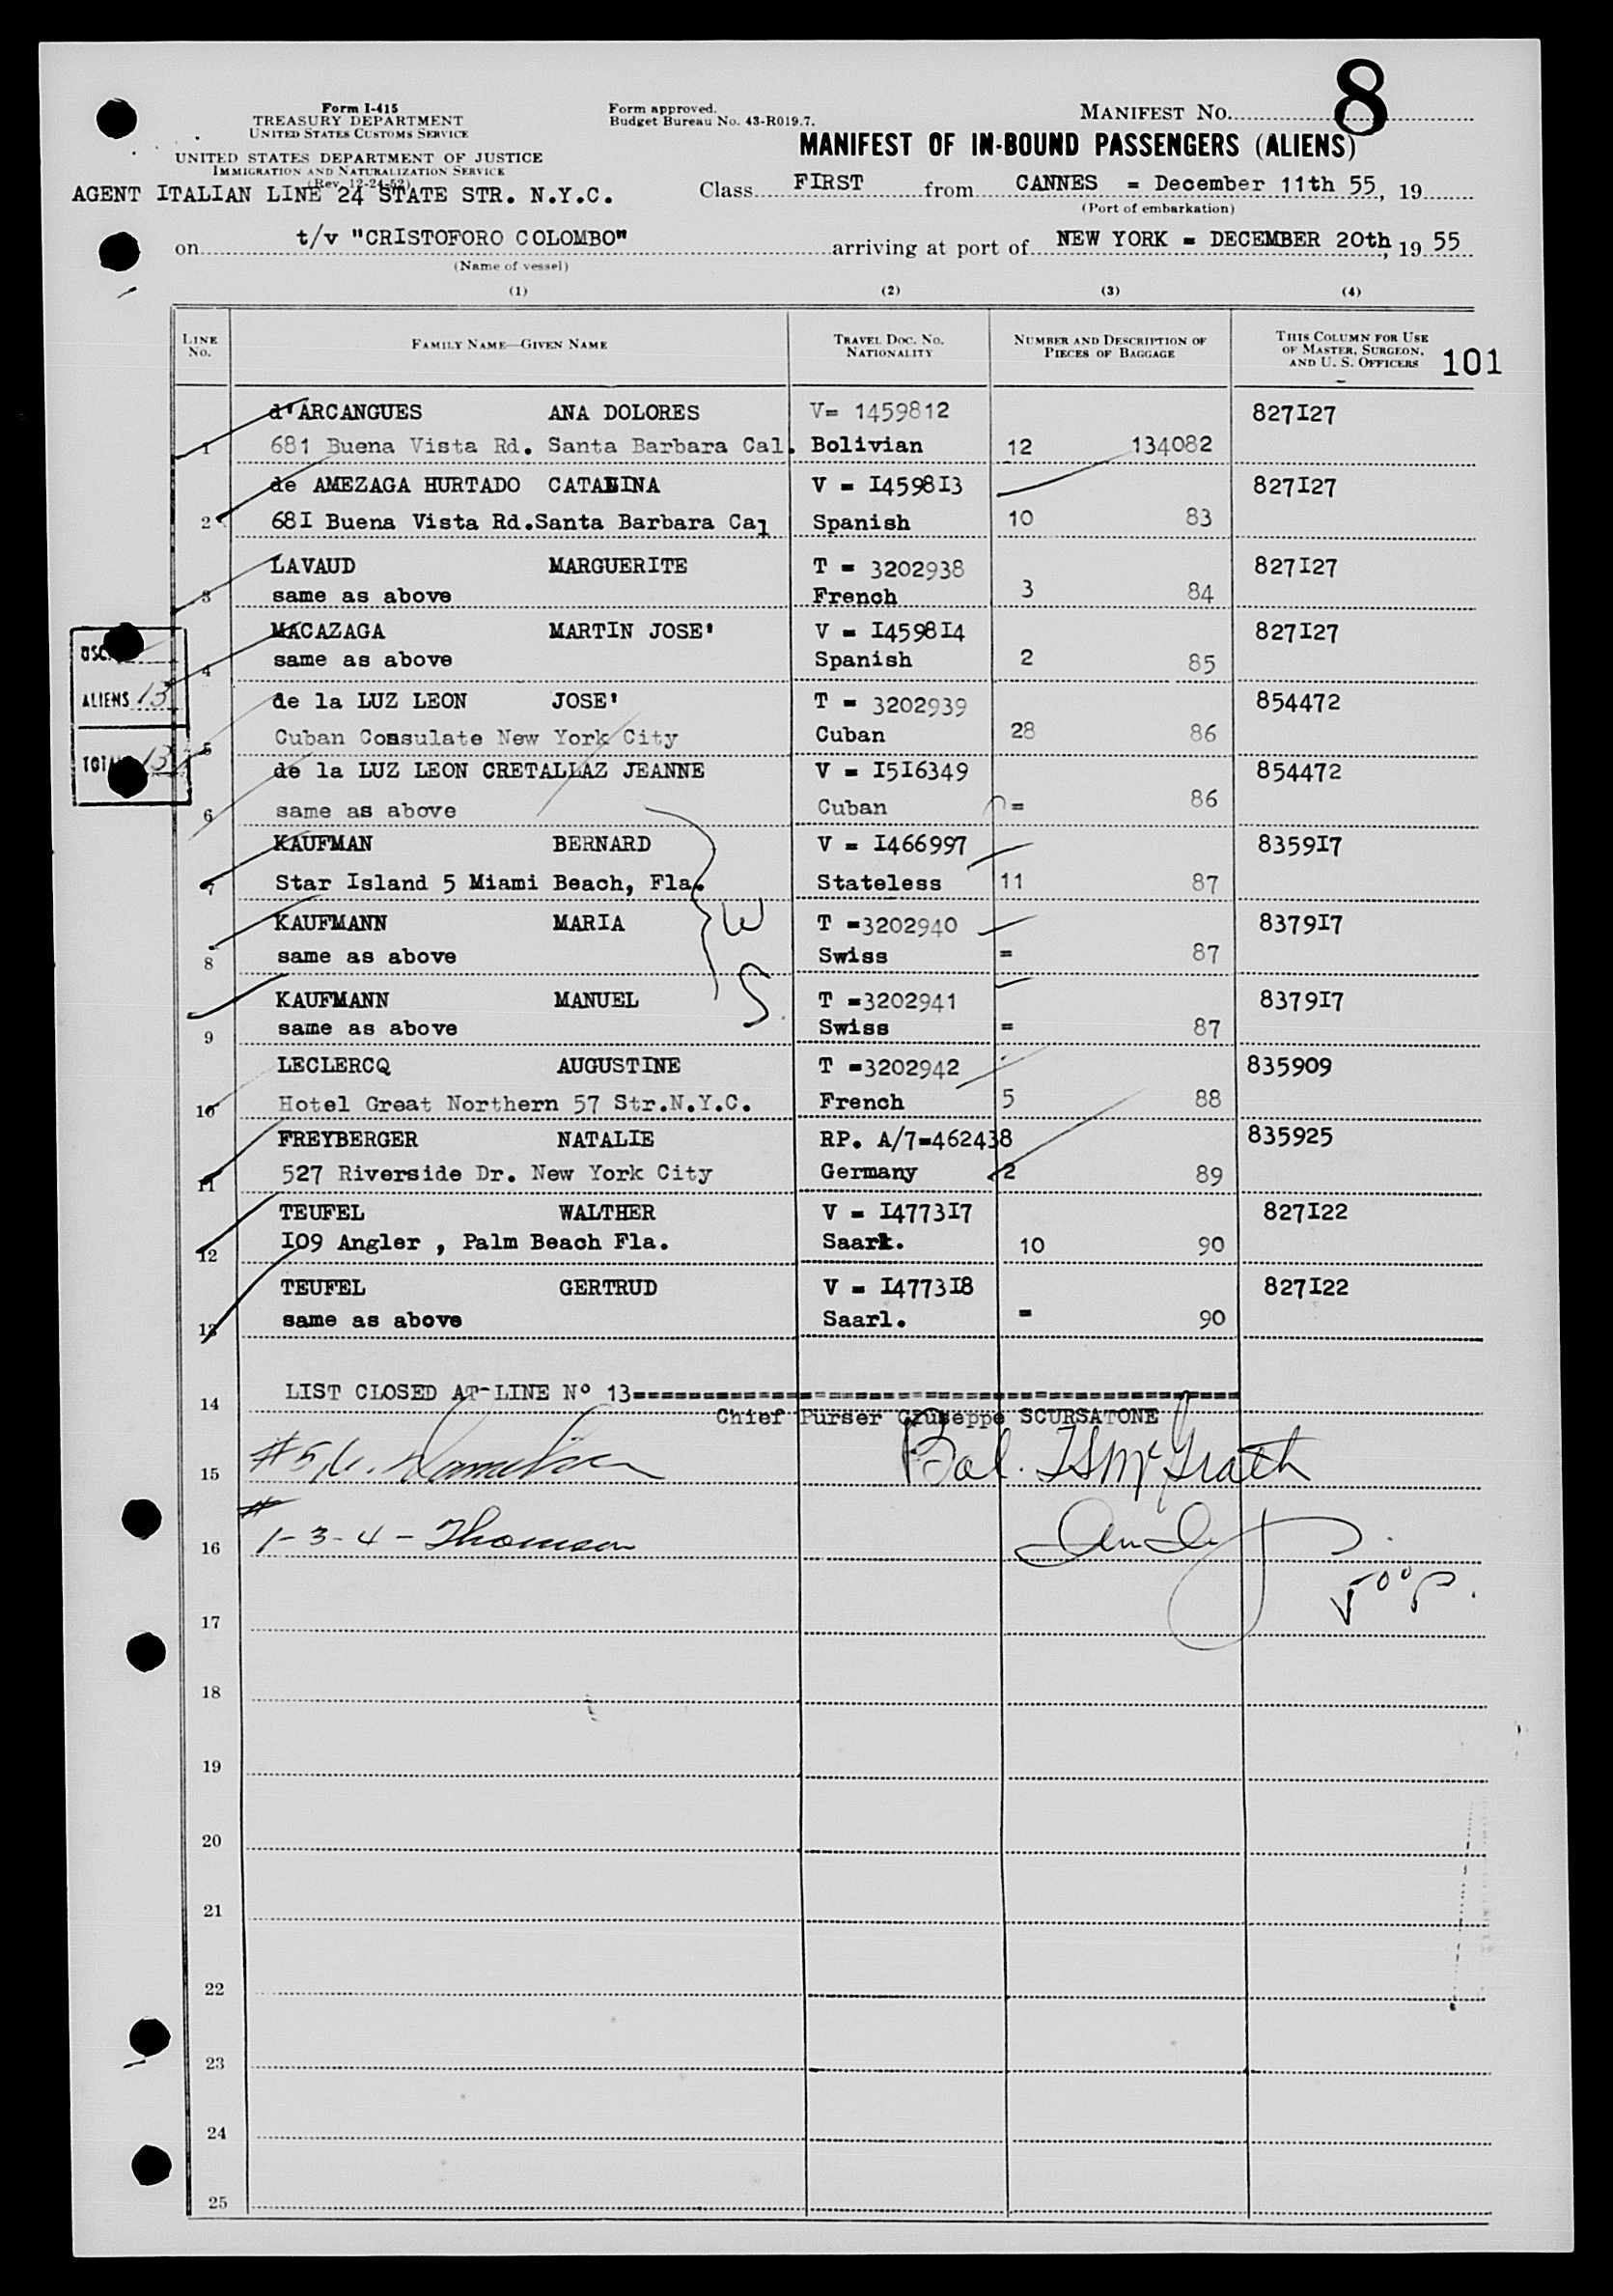 8
Form I-415
TREASURY DEPARTMENT
UNITED STATES CUSTOMS SERVICE
UNITED STATES DEPARTMENT OF JUSTICE
IMMIGRATION AND NATURALIZATION SERVICE
(Rev. 12-24-52)
Form approved.
Budget Bureau No. 43-R019.7.
MANIFEST NO.
MANIFEST OF IN-BOUND PASSENGERS (ALIENS)
AGENT ITALIAN LINE 24 STATE STR. N.Y.C.
Class FIRST from CANNES = December 11th 55, 19
(Port of embarkation)
on t/v "CRISTOFORO COLOMBO" arriving at port of NEW YORK = DECEMBER 20th, 19 55
(Name of vessel)
(1) (2) (3) (4)
LINE No. FAMILY NAME—GIVEN NAME TRAVEL DOC. NO. NATIONALITY NUMBER AND DESCRIPTION OF PIECES OF BAGGAGE THIS COLUMN FOR USE OF MASTER, SURGEON, AND U. S. OFFICERS 101
d'ARCANGUES ANA DOLORES V= 1459812 827I27
1 681 Buena Vista Rd. Santa Barbara Cal. Bolivian 12 134082
de AMEZAGA HURTADO CATALINA V = I4598I3 827I27
2 68I Buena Vista Rd.Santa Barbara Cal Spanish 10 83
LAVAUD MARGUERITE T = 3202938 827I27
3 same as above French 3 84
MACAZAGA MARTIN JOSE' V = I4598I4 827I27
4 same as above Spanish 2 85
de la LUZ LEON JOSE' T = 3202939 854472
5 Cuban Consulate New York City Cuban 28 86
de la LUZ LEON CRETALLAZ JEANNE V = I5I6349 854472
6 same as above Cuban = 86
KAUFMAN BERNARD V = I466997 8359I7
7 Star Island 5 Miami Beach, Fla. Stateless 11 87
KAUFMANN MARIA T =3202940 8379I7
8 same as above Swiss = 87
KAUFMANN MANUEL T =3202941 8379I7
9 same as above Swiss = 87
LECLERCQ AUGUSTINE T =3202942 835909
10 Hotel Great Northern 57 Str.N.Y.C. French 5 88
FREYBERGER NATALIE RP. A/7=462438 835925
11 527 Riverside Dr. New York City Germany 2 89
TEUFEL WALTHER V = I4773I7 827I22
12 I09 Angler , Palm Beach Fla. Saarl. 10 90
TEUFEL GERTRUD V = I4773I8 827I22
13 same as above Saarl. = 90
ALIENS 13
TOTAL 13
W
S
14 LIST CLOSED AT LINE Nº 13====================
Chief Purser Giuseppe SCURSATONE
15 #5,6. Bal. McGrath
#
16 1-3-4- Thomson
17
18
19
20
21
22
23
24
25